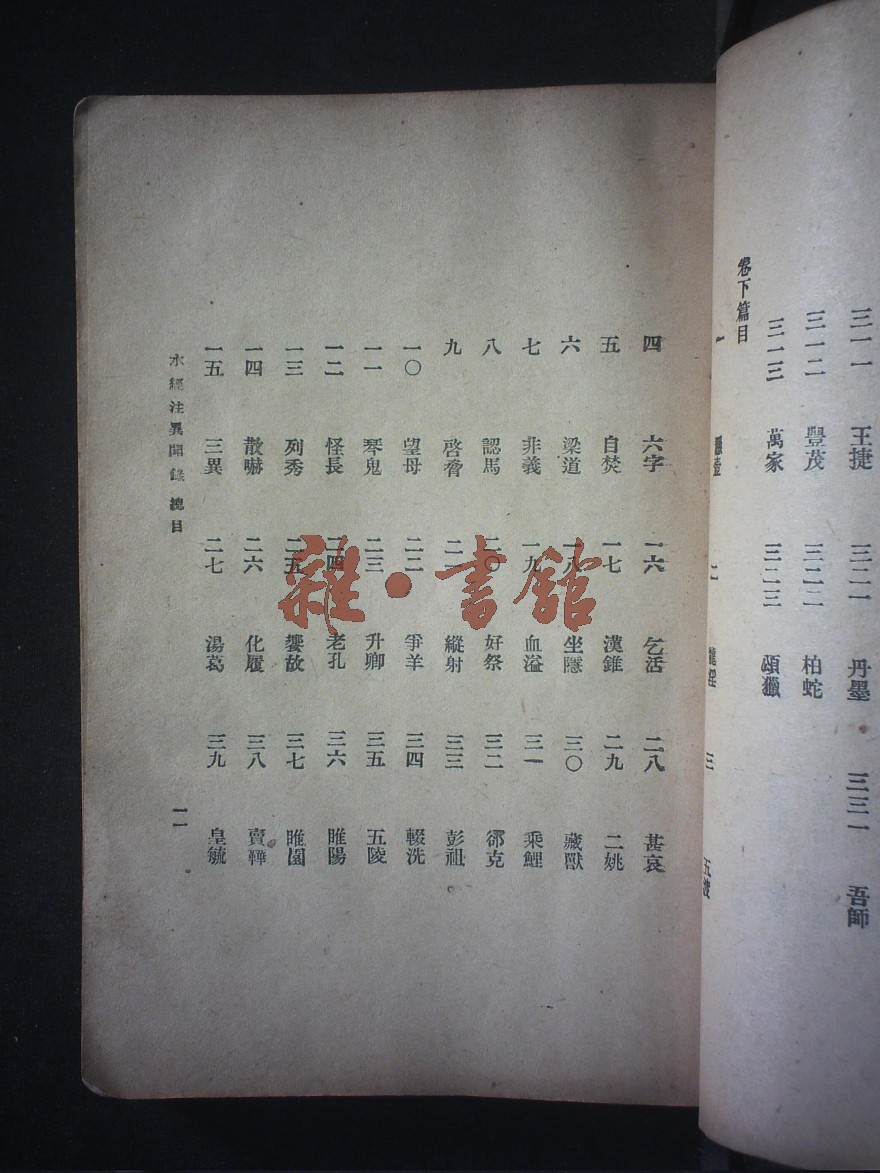 三一一　王捷　三二一　丹墨　三三一　吾師
三一二　豐茂　三二二　柏蛇
三一三　萬家　三二三　頌獵
卷下篇目
一　二　三　五渡
四　六字　一六　乞活　二八　甚哀
五　自焚　一七　漢錐　二九　二姚
六　梁道　一八　坐隱　三〇　藏獸
七　非義　一九　血溢　三一　乘鯉
八　認馬　二〇　好祭　三二　郤克
九　啓脊　二一　縱射　三三　彭祖
一〇　望母　二二　爭羊　三四　輟洗
一一　琴鬼　二三　升卿　三五　五陵
一二　怪長　二四　老孔　三六　睢陽
一三　列秀　二五　饗故　三七　睢園
一四　散嚇　二六　化履　三八　賣鞾
一五　三異　二七　湯葛　三九　皇毓
水經注異聞錄　總目
一一
雜·書館